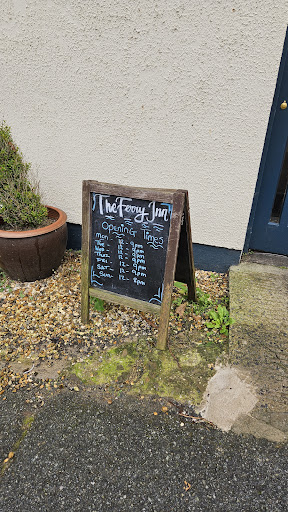 The Ferry Inn
Opening Times
Mon 12 - 9pm
Tue - 12 - 9pm
Wed - 12 - 9pm
Thur - 12 - 9pm
Fri - 12 - 9pm
Sat - 12 - 9pm
Sun - 12 - 8pm